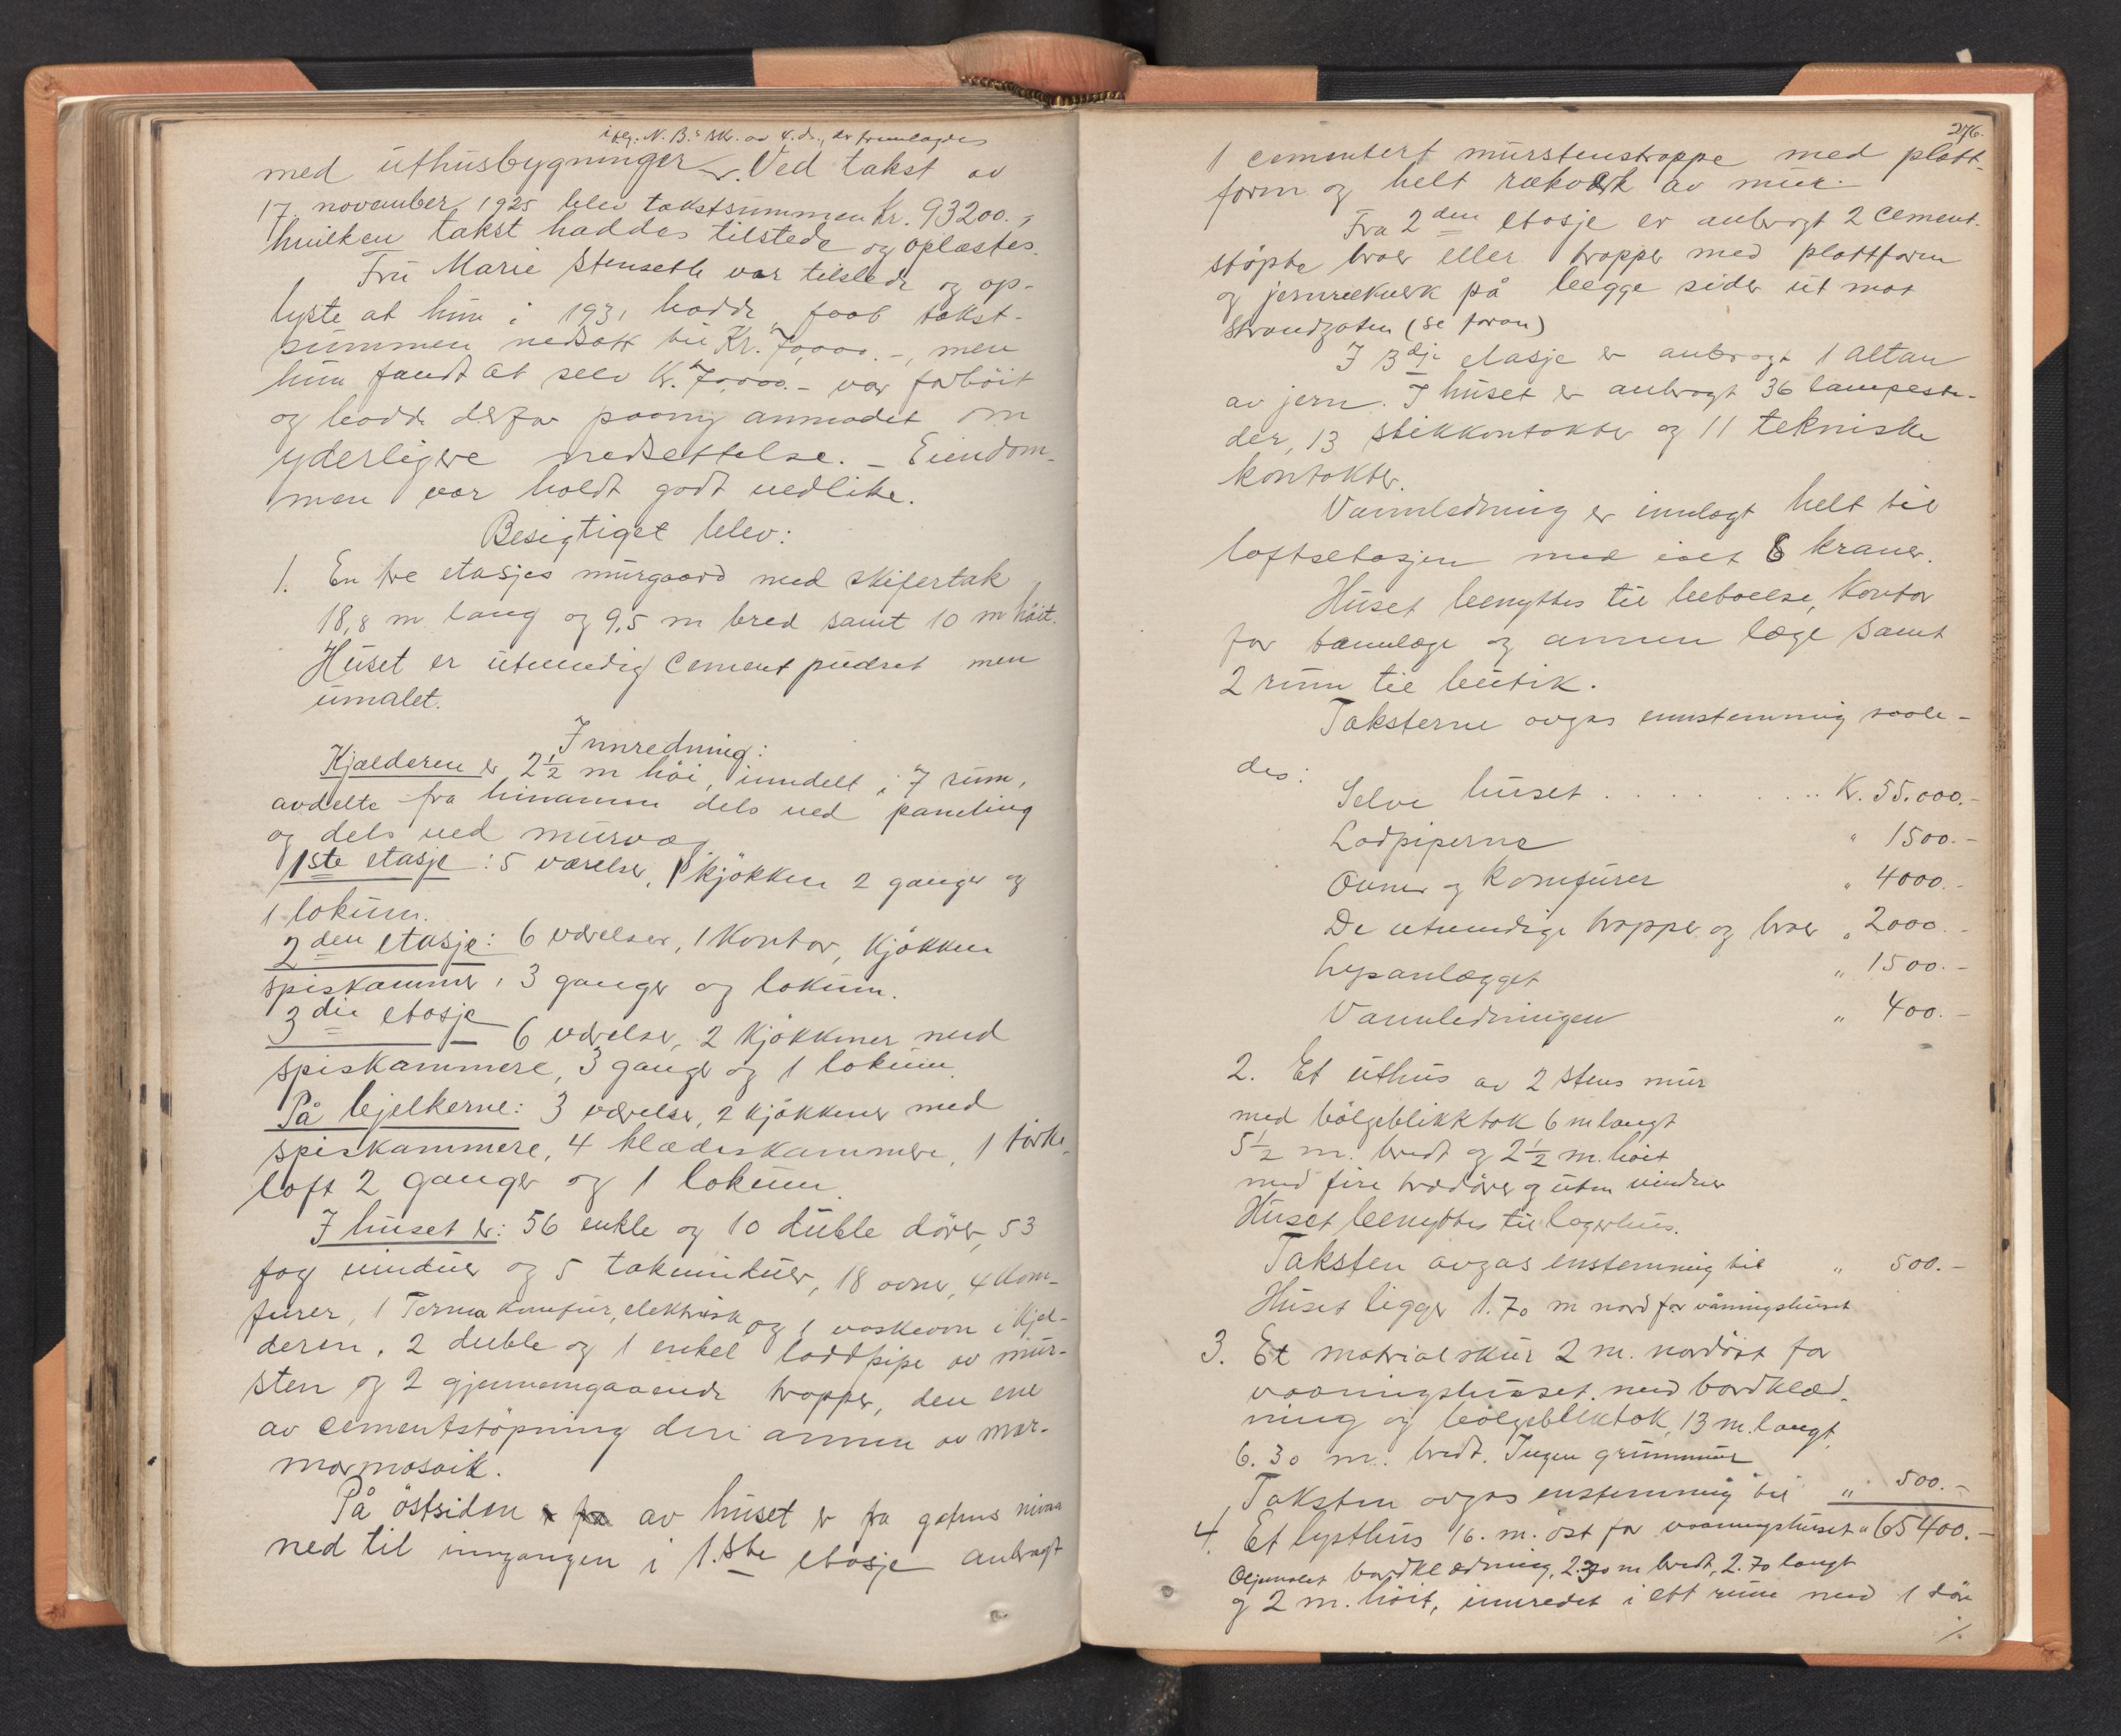 iflg. N. B.s skr. av 4. ds., der fremlagdes
med uthusbygninger. Ved takst av
17 november 1925 blev takstsummen Kr. 93200.-,
hvilken takst haddes tilstede og oplæstes.
Fru Marie Stenseth var tilstede og op-
lyste at hun i 1931 hadde faat takst-
summen nedsatt til Kr. 70,000.-, men
hun fandt at selv Kr. 70,000.- var for høit
og hadde derfor paany anmodet om
yderligere nedsettelse. – Eiendom-
men var holdt godt vedlike.
Besigtiget blev:
1. En tre etasjes murgaard med skifertak
18,8 m lang og 9,5 m bred samt 10 m høit.
Huset er utvendig cementpudset men
umalet.
Innredning:
Kjælderen er 2½ m høi, inndelt i 7 rum,
avdelte fra hinannen dels ved paneling
og dels ved murvæg.
1ste etasje: 5 værelser, 1 kjøkken 2 ganger og
1 lokum.
2den etasje: 6 værelser, 1 Kontor, Kjøkken
spiskammer, 3 ganger og lokum.
3die etasje 6 værelser, 2 Kjøkkener med
spiskammere, 3 ganger og 1 lokum.
På bjelkerne: 3 værelser, 2 kjøkkener med
spiskammere, 4 klædeskammere, 1 tørke-
loft 2 ganger og 1 lokum.
I huset er: 56 enkle og 10 duble dører, 53
fag vinduer og 5 takvinduer, 18 ovner, 4 Kom-
furer, 1 Terma komfur, elektrisk og 1 vaskeovn i kjel-
deren, 2 duble og 1 enkel loddpipe av mur-
sten og 2 gjennemgaaende trapper, den ene
av cementstøpning den annen av mar-
mormosaik.
På østsiden av huset er fra gatens nivaa
ned til inngangen i 1.ste etasje anbragt
276.
1 cementert murstenstrappe med platt-
form og helt rækverk av mur.
Fra 2den etasje er anbragt 2 cement-
støpte broer eller trapper med plattform
og jernrekverk på begge sider ut mot
Strandgaten (se foran)
I 3dje etasje er anbragt 1 altan
av jern. I huset er anbragt 36 lampeste-
der, 13 stikkontakter og 11 tekniske
kontakter.
Vannledning er innlagt helt til
loftsetasjen med ialt 8 kraner.
Huset benyttes til beboelse, kontor
for tannlæge og annen læge samt
2 rum til butik.
Taksterne avgas ennstemmig saale-
des:
Selve huset . . . . . . . . Kr. 55.000.-
Lodpiperne " 1500.-
Ovner og komfurer " 4000.-
De utvendige trapper og broer " 2000.-
Lysanlægget " 1500.-
Vannledningen " 400.-
2. Et uthus av 2 stens mur
med bølgeblikktak 6 m langt
5½ m. bredt og 2½ m. høit
med fire trædører og uten vinduer
Huset benyttes til lagerhus.
Taksten avgas enstemmig til " 500.-
Huset ligger 1.70 m nord for våningshuset
3. Et matrialskur 2 m. nordøst for
vaaningshuset med bordklæd-
ning og bølgebliktak, 13 m. langt,
6.30 m. bredt. Ingen grunnmur
Taksten avgas enstemmig til " 500.-
4. Et lysthus 16. m. øst for vaaningshuset " 65400.-
Oljemalet bordklædning, 2.30 m bredt, 2.70 langt
og 2 m. høit, innredet i ett rum med 1 dør
./.